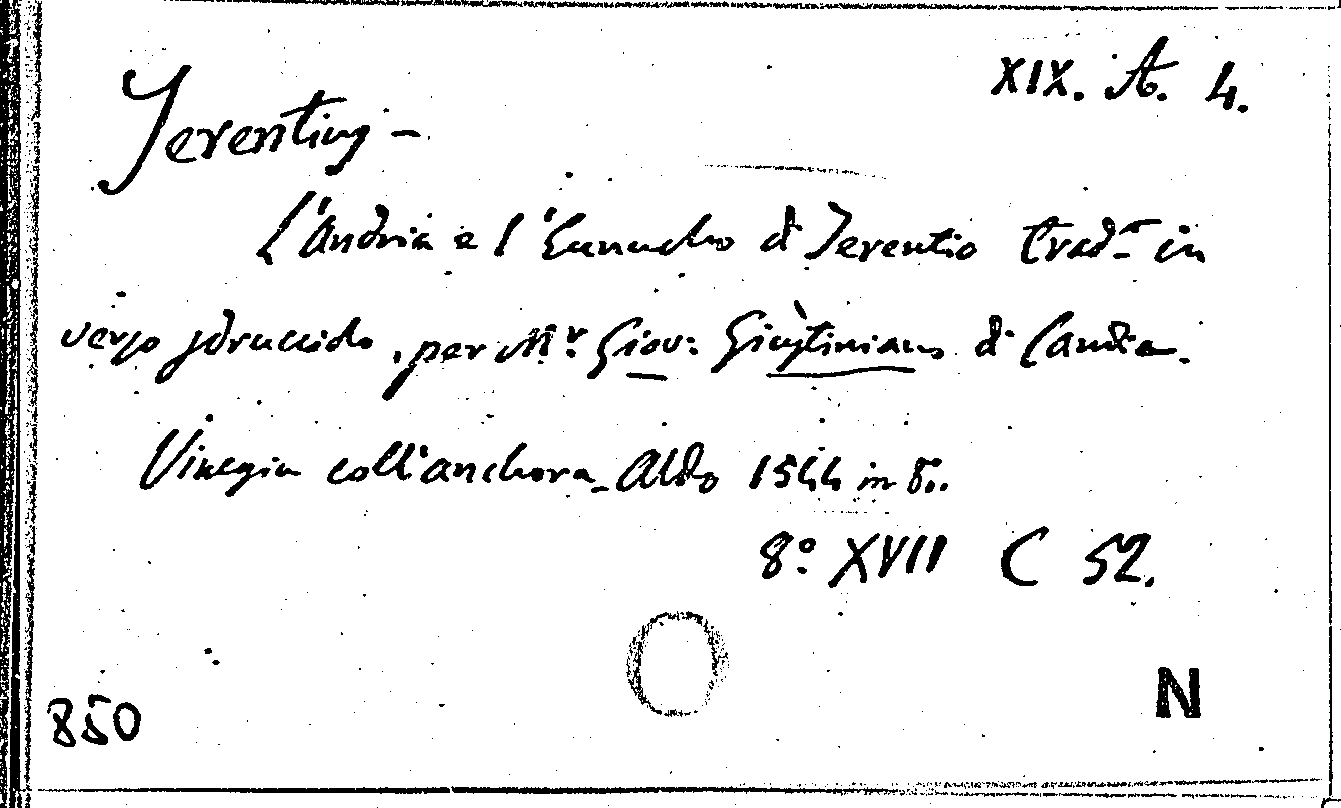 XIX. A. 4.
Terentius -
L'Andria e l'Eunucho di Terentio trad. in
verso sdrucciolo, per Mr. Giov: Giustiniano di Candia.
Vinegia coll'anchora Aldo 1544 in 8..
8° XVII C 52.
850
N